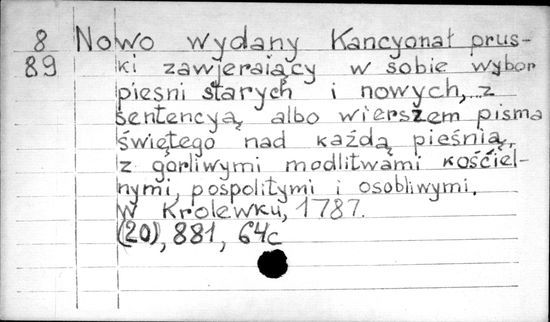 8 Nowo wydany Kancyonał prus-
89 ki zawieraiący w sobie wybor
piesni starych i nowych, z
sentencyą albo wierszem pisma
świętego nad każdą pieśnią,
z gorliwymi modlitwami kościel-
nymi, pospolitymi i osobliwymi.
W Krolewku, 1787.
(20), 881, 64c